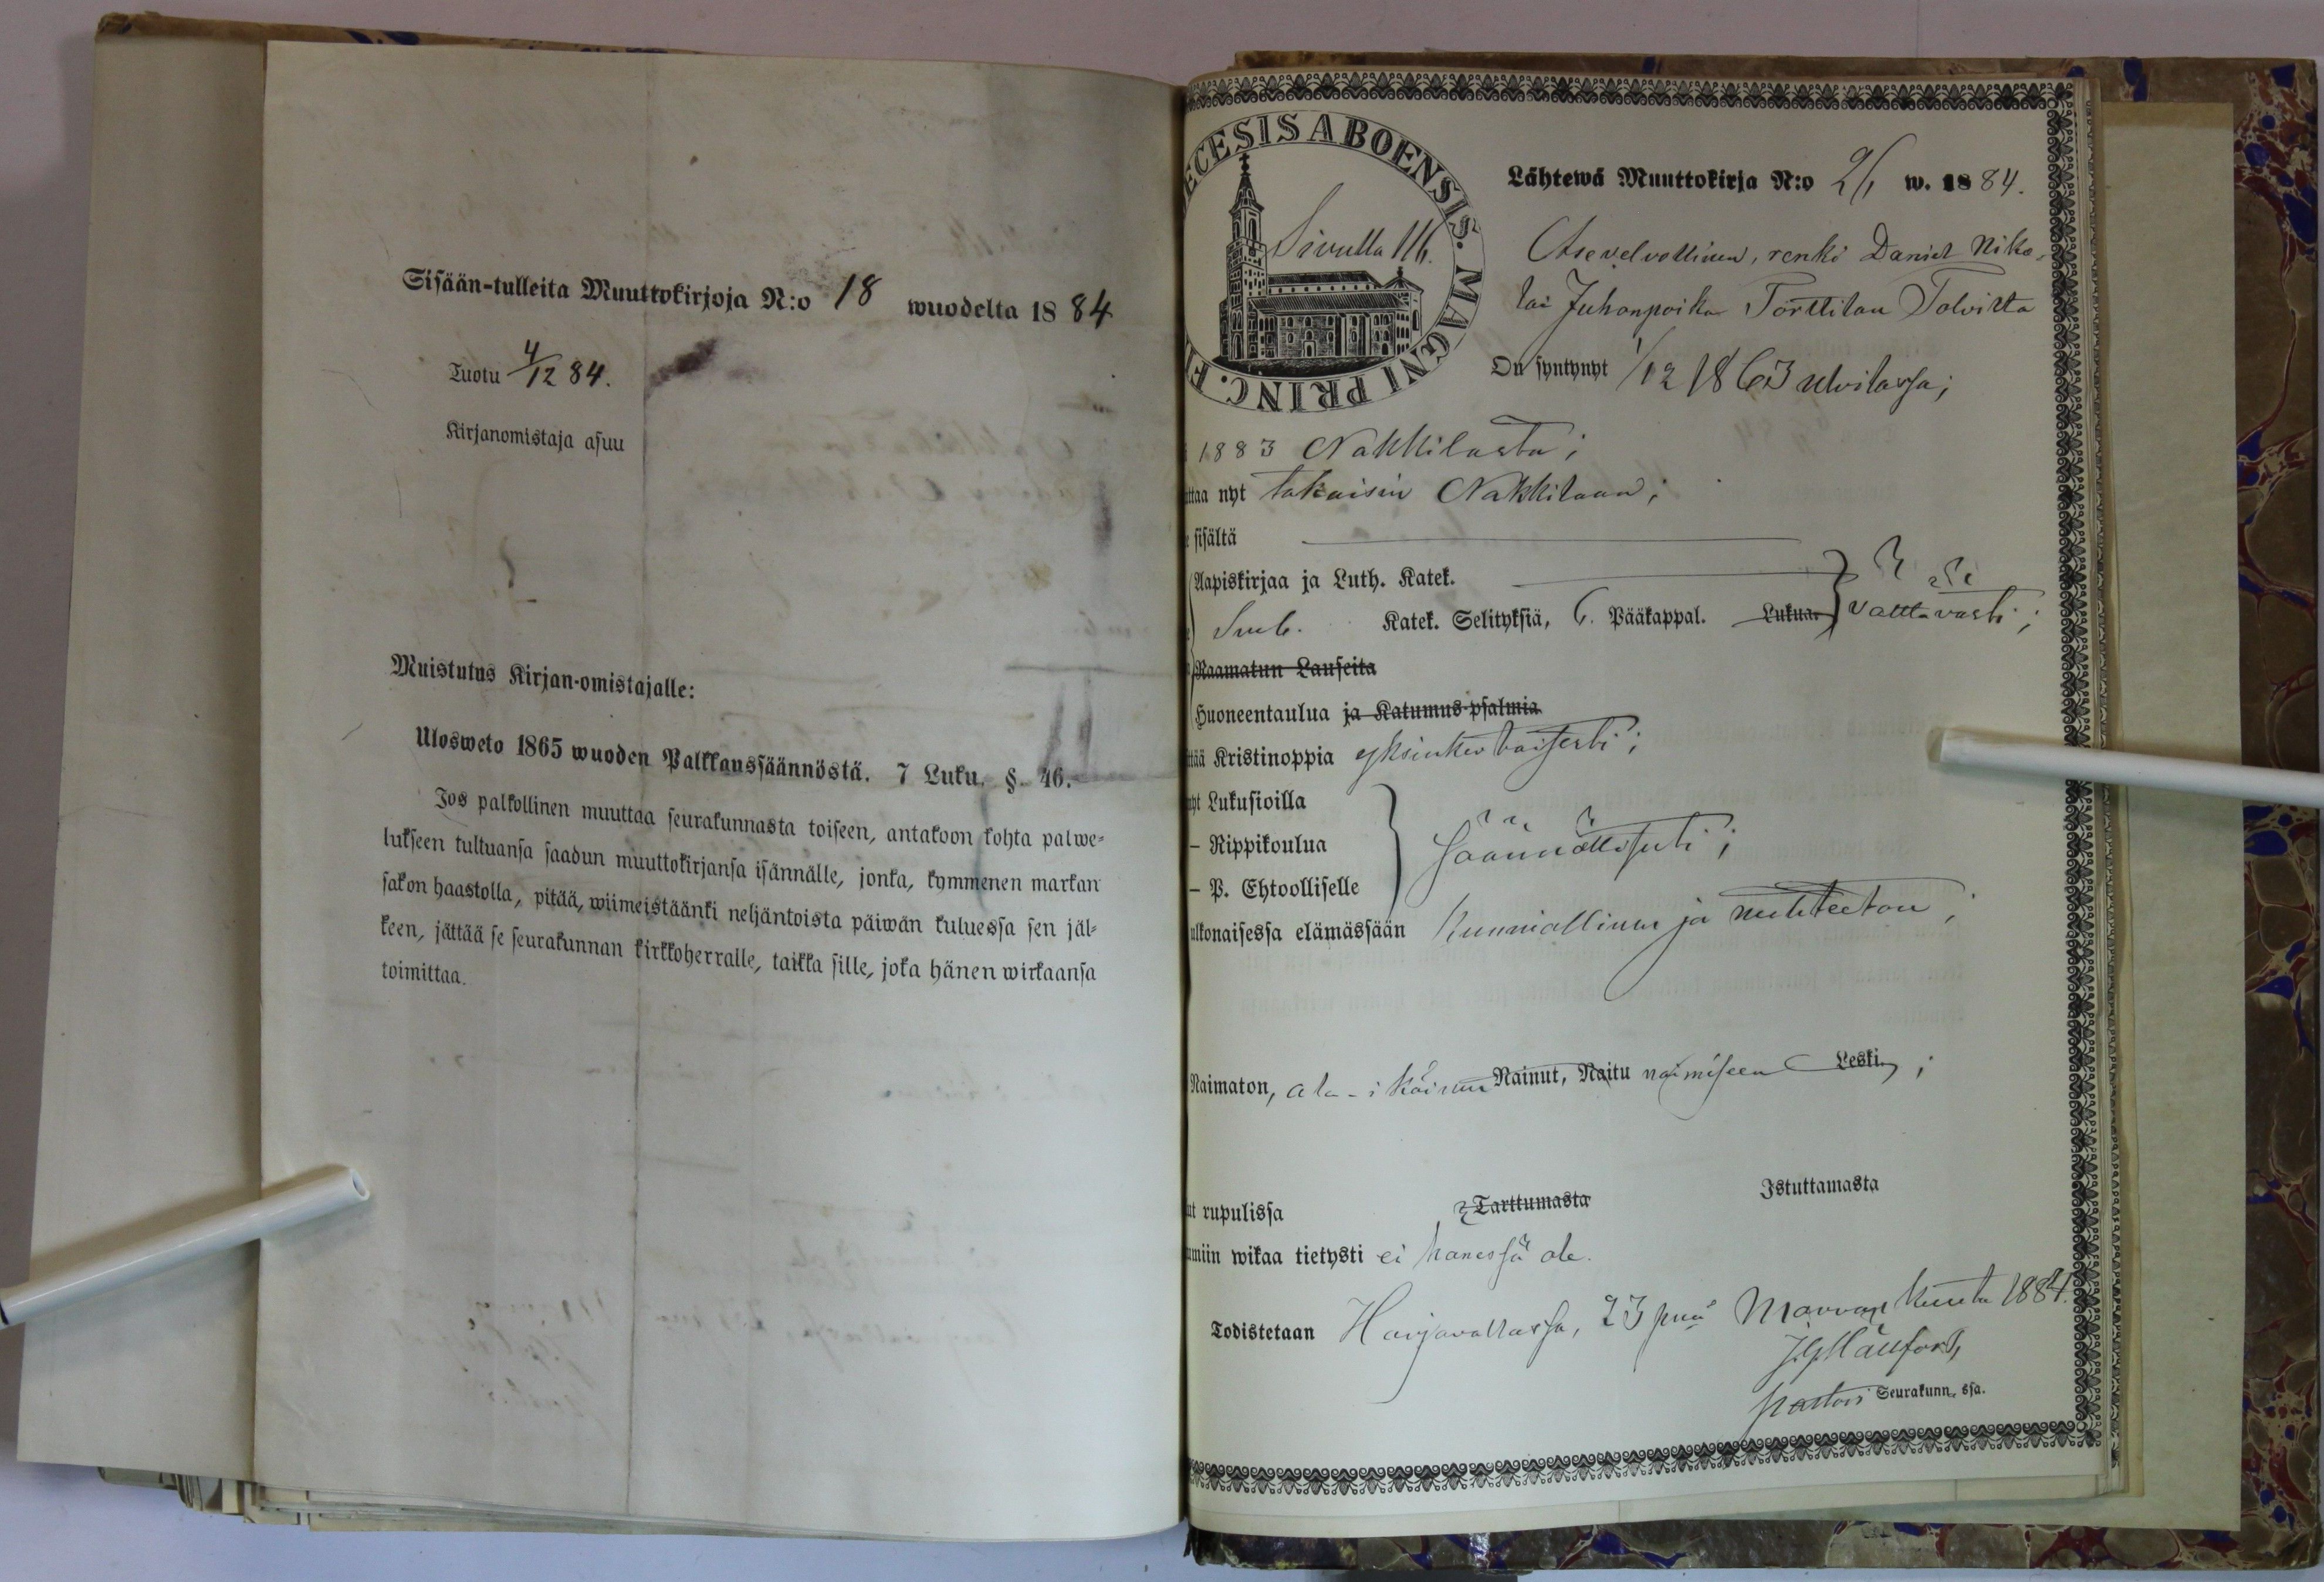 Sisään-tulleita Muuttokirjoja N:o 18 wuodelta 18 84
Tuotu 4/12 84.
Kirjanomistaja asuu
Muistutus Kirjan-omistajalle:
Ulosweto 1865 wuoden Palkkaussäännöstä. 7 Luku. §. 46.
Jos palkollinen muuttaa seurakunnasta toiseen, antakoon kohta palwe-
lukseen tultuansa saadun muuttokirjansa isännälle, jonka, kymmenen markan
sakon haastolla, pitää, wiimeistäänki neljäntoista päiwän kuluessa sen jäl-
keen, jättää se seurakunnan kirkkoherralle, taikka sille, joka hänen wirkaansa
toimittaa.
ECESIS ABOENSIS. MAGNI PRINC. F
Sivulla 116.
Lähtewä Muuttokirja N:o w. 18 84.
Asevelvollinen, renki Daniel Niko-
lai Juhanpoika Torttilan Tolvilta
On syntynyt 1/12 1863 Ulvilassa;
1883 Nakkilasta;
ttaa nyt takaisin Nakkilaan;
sisältä
Aapiskirjaa ja Luth. Katek.
Katek. Selityksiä, 6. Pääkappal. Lukua välttävästi;
Raamatun Lauseita
Huoneentaulua ja Katumus-psalmia
ttää Kristinoppia yksinkertaisesti;
nyt Lukusioilla
– Rippikoulua
– P. Ehtoolliselle
säännöllisesti;
ulkonaisessa elämässään kunniallinen ja nuhteeton;
Naimaton, ala-ikäinen Nainut, Naitu naimiseen Leski;
ut rupulissa Tarttumasta Istuttamasta
miin wikaa tietysti ei hänessä ole.
Todistetaan Harjavallassa, 23 pnä Marraskuuta 1884.
pastori Seurakunn. ssa.